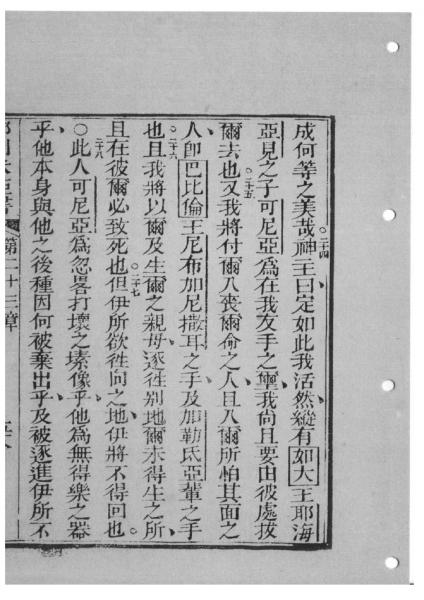 成何等之美哉神王曰定如此我活然縱有如大王耶海
亞見之子可尼亞為在我友手之璽我尚且要由彼處拔
爾去也又我將付爾入喪爾侖之人且入爾所怕其面之
人即巴比倫王尼布加尼撒耳之手及加勒氐亞輩之手
也且我將以爾及生爾之親母逐徃別地爾未得生之所
且在彼爾必致死也但伊所欲徃向之地伊將不得回也
○此人可尼亞為忽畧打壞之𡑞像乎他為無得樂之器
乎他本身與他之後種因何被棄出乎及被逐進伊所不
二十四
二十五
二十六
二十七
二十八
第二十三章